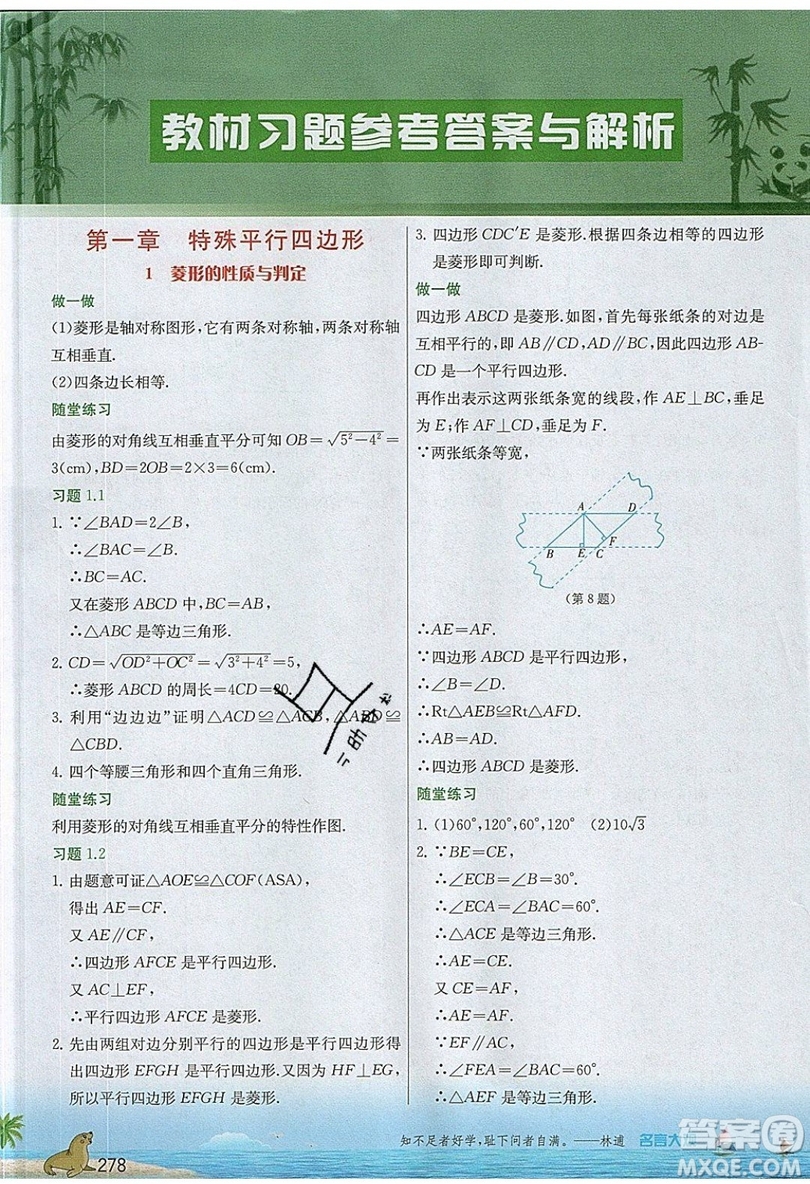 教材习题参考答案与解析
第一章 特殊平行四边形
1 菱形的性质与判定
做一做
(1)菱形是轴对称图形,它有两条对称轴,两条对称轴
互相垂直.
(2)四条边长相等.
随堂练习
由菱形的对角线互相垂直平分可知OB=√(5²-4²)=
3(cm),BD=2OB=2×3=6(cm).
习题 1.1
1. ∵∠BAD=2∠B,
∴∠BAC=∠B.
∴BC=AC.
又在菱形 ABCD 中,BC=AB,
∴△ABC 是等边三角形.
2. CD=√(OD²+OC²)=√(3²+4²)=5,
∴菱形 ABCD 的周长=4CD=20.
3. 利用“边边边”证明△ACD≌△ACB,△ABD≌
△CBD.
4. 四个等腰三角形和四个直角三角形.
随堂练习
利用菱形的对角线互相垂直平分的特性作图.
习题 1.2
1. 由题意可证△AOE≌△COF(ASA),
得出 AE=CF.
又 AE∥CF,
∴四边形 AFCE 是平行四边形.
又 AC⊥EF,
∴平行四边形 AFCE 是菱形.
2. 先由两组对边分别平行的四边形是平行四边形得
出四边形 EFGH 是平行四边形.又因为 HF⊥EG,
所以四边形 EFGH 是菱形.
3. 四边形 CDC′E 是菱形.根据四条边相等的四边形
是菱形即可判断.
做一做
四边形 ABCD 是菱形.如图,首先每张纸条的对边是
互相平行的,即 AB∥CD,AD∥BC,因此四边形 AB-
CD 是一个平行四边形.
再作出表示这两张纸条宽的线段,作 AE⊥BC,垂足
为 E;作 AF⊥CD,垂足为 F.
∵两张纸条等宽,
A D
F
B E C
(第 8 题)
∴AE=AF.
∵四边形 ABCD 是平行四边形,
∴∠B=∠D.
∴Rt△AEB≌Rt△AFD.
∴AB=AD.
∴四边形 ABCD 是菱形.
随堂练习
1. (1)60°,120°,60°,120° (2)10√3
2. ∵BE=CE,
∴∠ECB=∠B=30°.
∴∠ECA=∠BAC=60°.
∴△ACE 是等边三角形.
∴AE=CE.
又 CE=AF,
∴AE=AF.
∵EF∥AC,
∴∠FEA=∠BAC=60°.
∴△AEF 是等边三角形.
知不足者好学,耻下问者自满。——林逋 名言大
278
答案圈
MXQE.COM